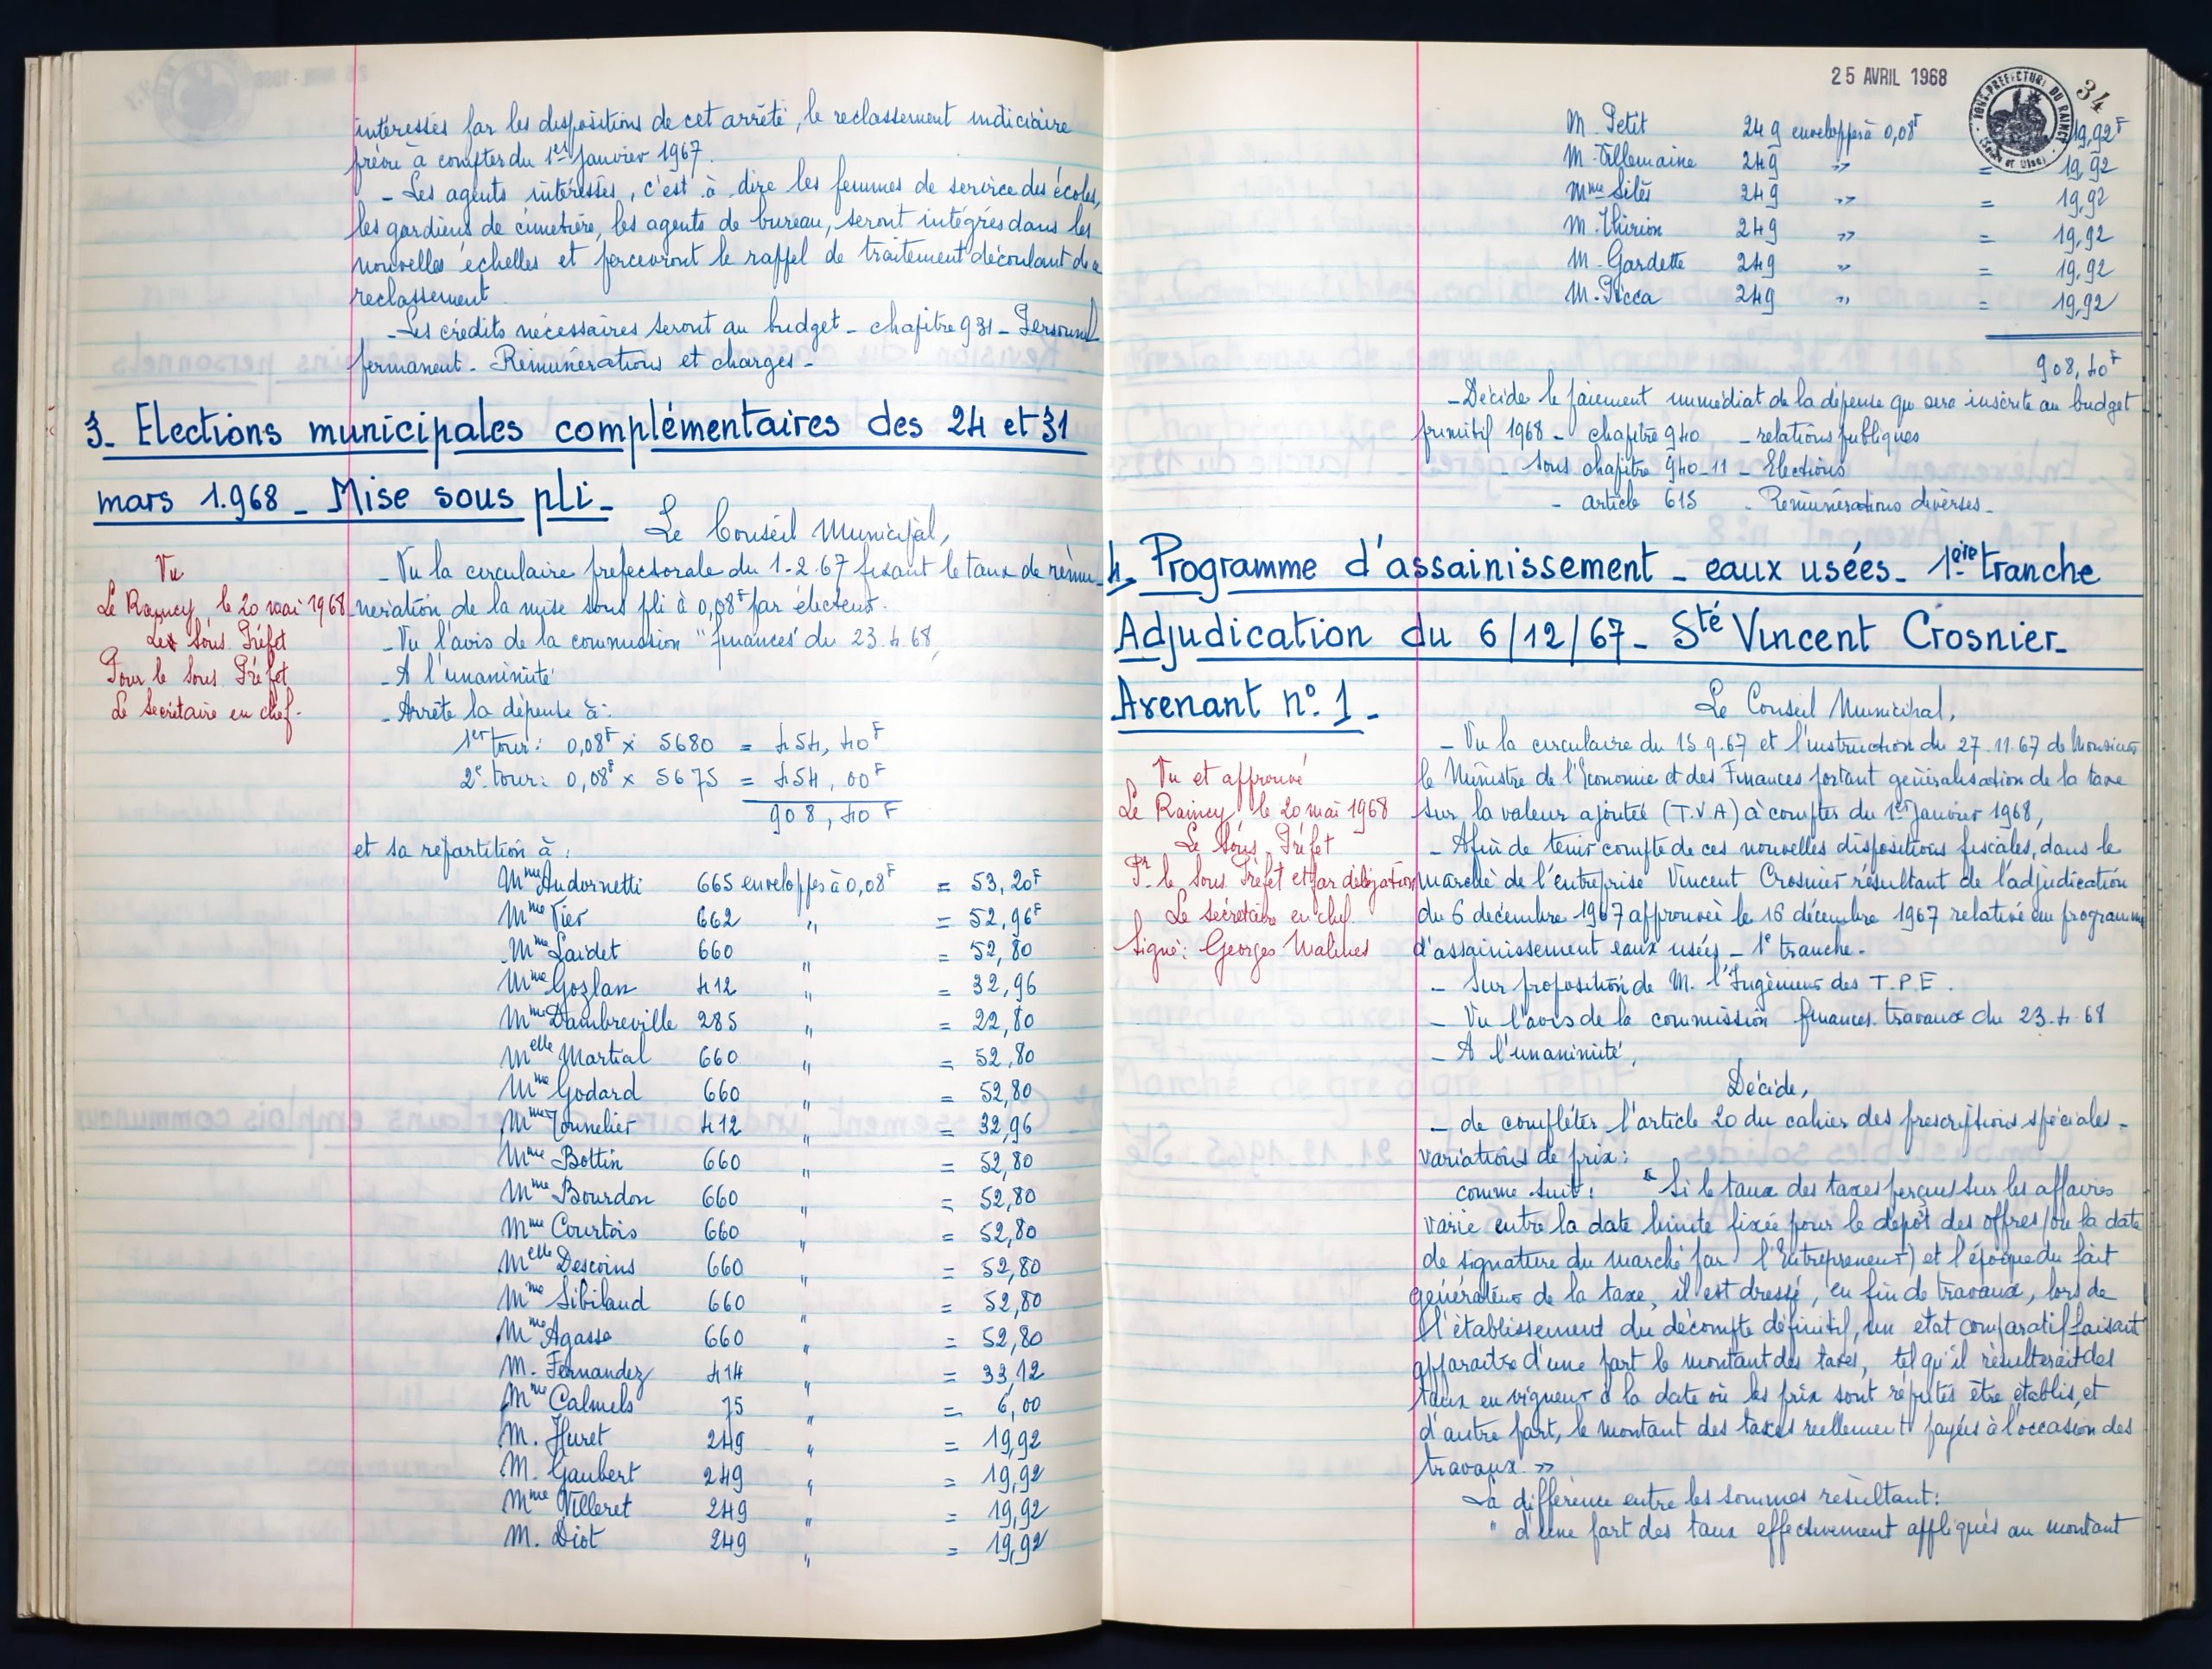 intéressés par les dispositions de cet arrêté, le reclassement indiciaire
prévu à compter du 1er Janvier 1967.
- Les agents intéressés, c'est à dire les femmes de service des écoles,
les gardiens de cimetière, les agents de bureau, seront intégrés dans les
nouvelles échelles et percevront le rappel de traitement découlant de ce
reclassement
- Les crédits nécessaires seront au budget - chapitre 931 - Personnel
permanent - Rémunérations et charges -
3- Elections municipales complémentaires des 24 et 31
mars 1.968 - Mise sous pli -
Le Conseil Municipal,
- Vu la circulaire prefectorale du 1-2.67 fixant le taux de rému-
nération de la mise sous pli à 0,08F par électeur.
- Vu l'avis de la commission "finances" du 23.4.68,
- A l'unanimité
- Arrête la dépense à:
1er tour: 0,08F x 5680 = 454,40F
2e tour: 0,08F x 5675 = 454,00F
908,40 F
et sa répartition à:
Vu
Le Raincy, le 20 mai 1968
Le Sous Préfet
Pour le Sous Préfet
Le Secrétaire en chef.
Mme Andornetti 665 enveloppes à 0,08F = 53,20F
Mme Vier 662 " = 52,96F
Mme Laidet 660 " = 52,80
Mme Gozlan 412 " = 32,96
Mme Dambreville 285 " = 22,80
Melle Martial 660 " = 52,80
Mme Godard 660 " = 52,80
Mme Tonnelier 412 " = 32,96
Mme Bottin 660 " = 52,80
Mme Bourdon 660 " = 52,80
Mme Courtois 660 " = 52,80
Melle Descoins 660 " = 52,80
Mme Sibilaud 660 " = 52,80
Mme Agasse 660 " = 52,80
M. Fernandez 414 " = 33,12
Mme Calmels 75 " = 6,00
M. Huret 249 " = 19,92
M. Gaubert 249 " = 19,92
Mme Villeret 249 " = 19,92
M. Diot 249 " = 19,92
25 AVRIL 1968
SOUS-PREFECTURE DU RAINCY
(Seine et Oise)
34
M. Petit 249 enveloppes à 0,08F 19,92F
M. Villemaine 249 " = 19,92
Mme Silès 249 " = 19,92
M. Thirion 249 " = 19,92
M. Gardette 249 " = 19,92
M. Picca 249 " = 19,92
908,40F
- Décide le paiement immédiat de la dépense qui sera inscrite au budget
primitif 1968 - chapitre 940 - relations publiques
- sous chapitre 940-11 - Elections
- article 615 - Rémunérations diverses -
4. Programme d'assainissement - eaux usées - 1ère tranche
Adjudication du 6/12/67 - Sté Vincent Crosnier -
Avenant n° 1 -
Le Conseil Municipal,
- Vu la circulaire du 15.9.67 et l'instruction du 27.11.67 de Monsieur
le Ministre de l'Economie et des Finances portant généralisation de la taxe
sur la valeur ajoutée (T.V.A) à compter du 1er Janvier 1968,
- Afin de tenir compte de ces nouvelles dispositions fiscales, dans le
marché de l'entreprise Vincent Crosnier résultant de l'adjudication
du 6 décembre 1967 approuvée le 16 décembre 1967 relative au programme
d'assainissement eaux usées - 1e tranche.
- Sur proposition de M. l'Ingénieur des T.P.E.
- Vu l'avis de la commission finances travaux du 23.4.68
- A l'unanimité,
Vu et approuvé
Le Raincy, le 20 mai 1968
Le Sous Préfet
Pr le Sous Préfet et par délégation
Le secrétaire en chef
Signé: Georges
Décide,
- de compléter l'article 20 du cahier des prescriptions spéciales -
variations de prix:
comme suit: « Si le taux des taxes perçues sur les affaires
varie entre la date limite fixée pour le dépôt des offres (ou la date
de signature du marché par l'Entrepreneur) et l'époque du fait
générateur de la taxe, il est dressé, en fin de travaux, lors de
l'établissement du décompte définitif, un état comparatif faisant
apparaître d'une part le montant des taxes, tel qu'il résulterait des
taux en vigueur à la date où les prix sont réputés être établis, et
d'autre part, le montant des taxes réellement payées à l'occasion des
travaux. »
La différence entre les sommes résultant:
" d'une part des taux effectivement appliqués au montant